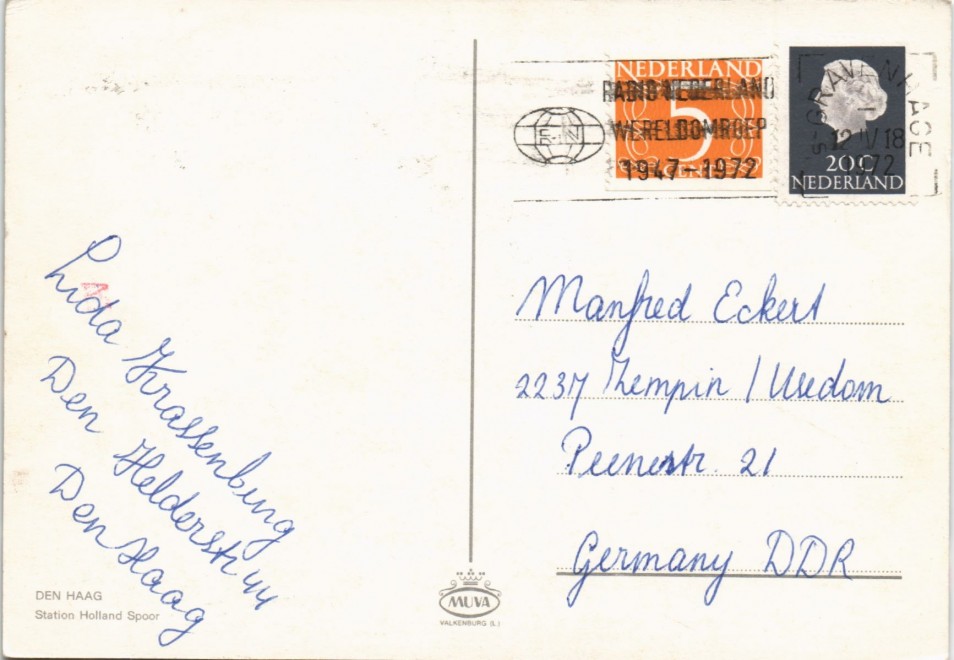 NEDERLAND
5
RADIO NEDERLAND
WERELDOMROEP
1947-1972
'S-GRAVENHAGE
12 IV 18
1972
20C
NEDERLAND
Manfred Eckert
2237 Zempin / Usedom
Peenestr. 21
Germany DDR
Lida Krassenburg
Den Helderstr 44
Den Haag
DEN HAAG
Station Holland Spoor
MUVA
VALKENBURG (L.)